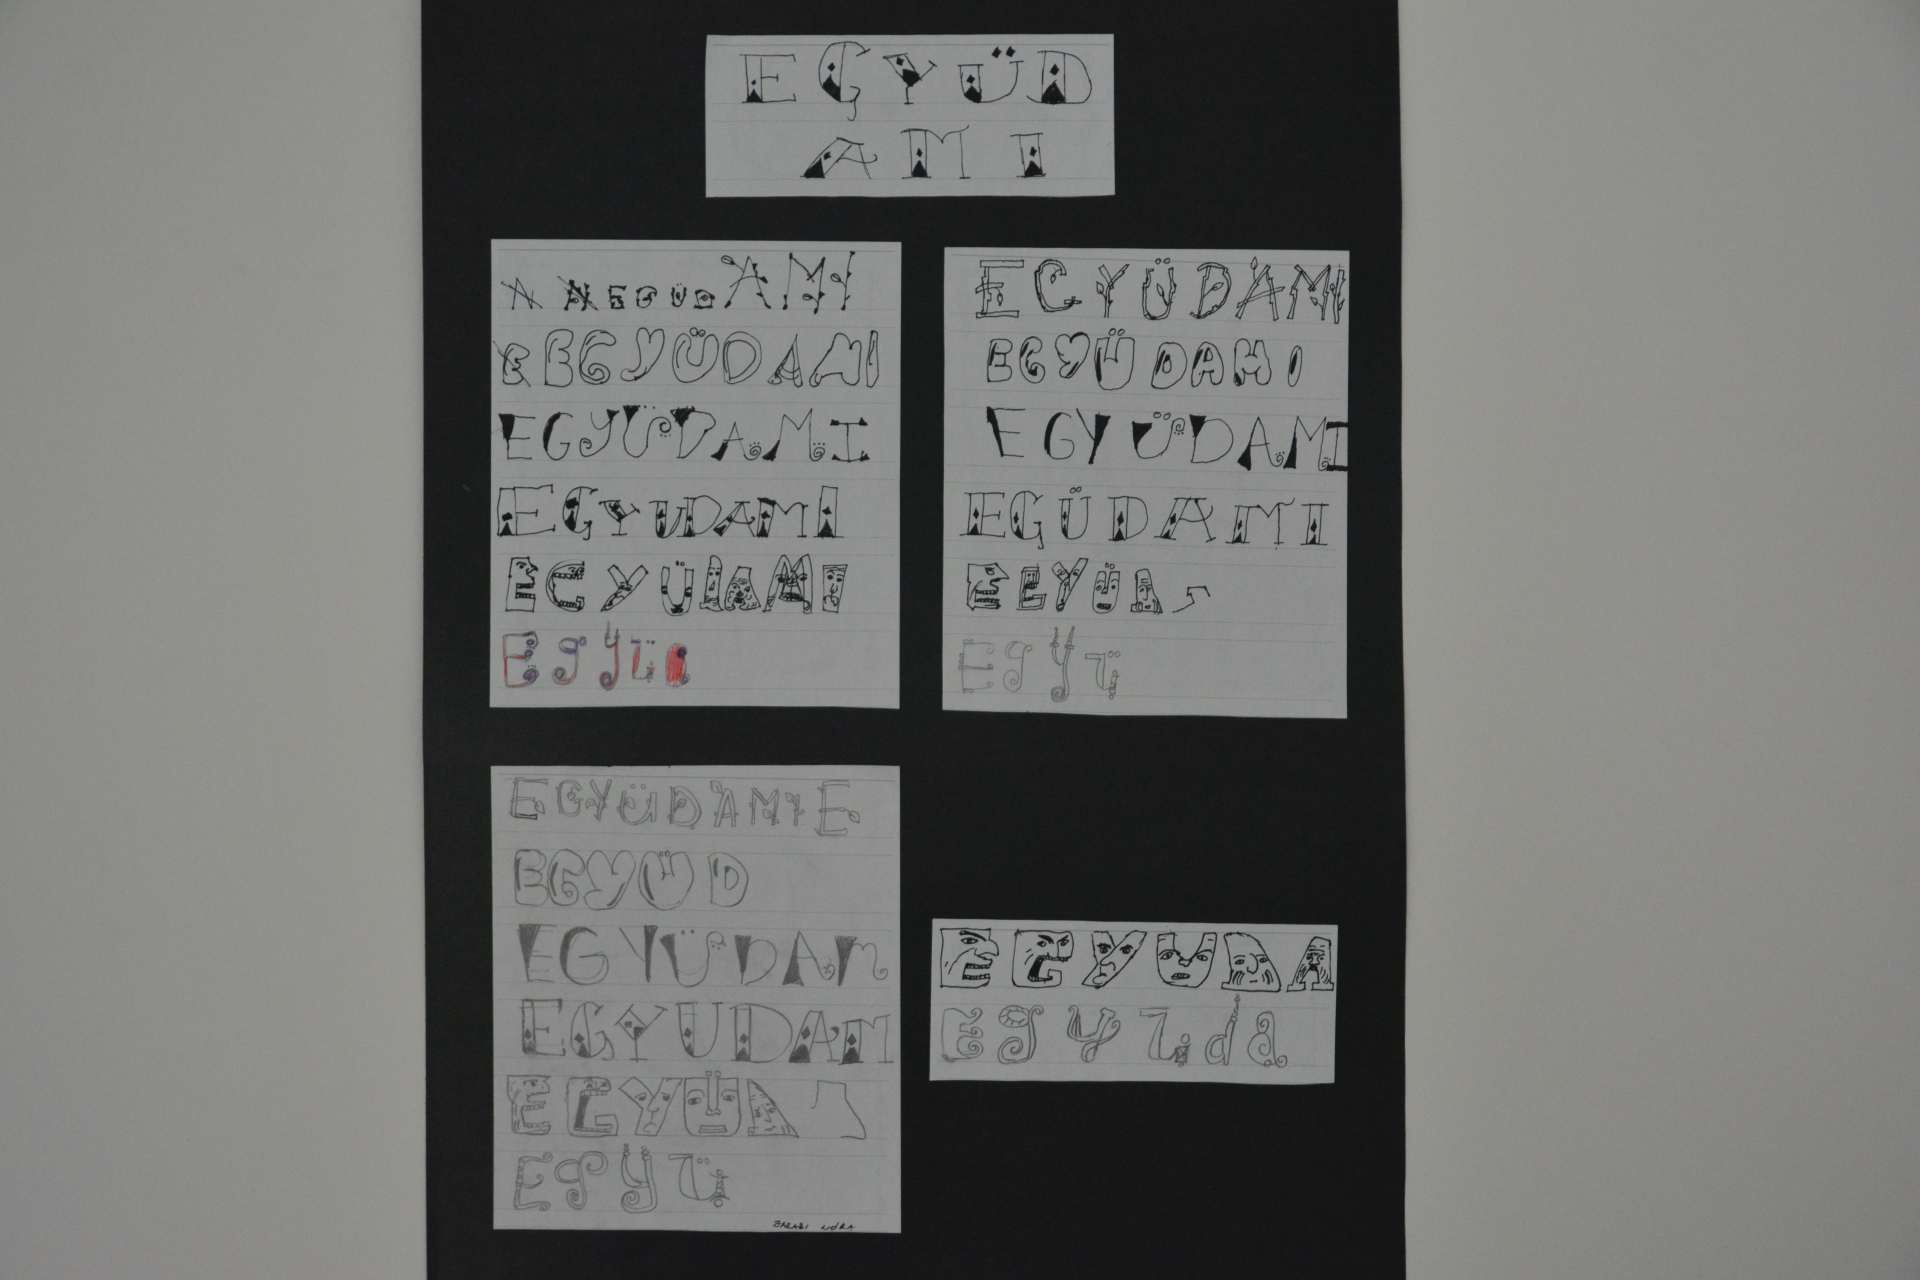 EGYÜD
AMI
EGÜD AMI
E EGYÜDAMI
EGYÜDAMI
EGYUDAMI
EGYÜ
Együ
EGYÜDAMI
EGYÜDAMI
EGYÜDAMI
EGÜDAMI
EGYÜD
EgYü
EGYÜDAMI E
EGYÜD
EGYÜDAM
EGYUDAM
EGYÜD
EgYÜ
BARABI NÓRA
EGYUDA
EgYüda